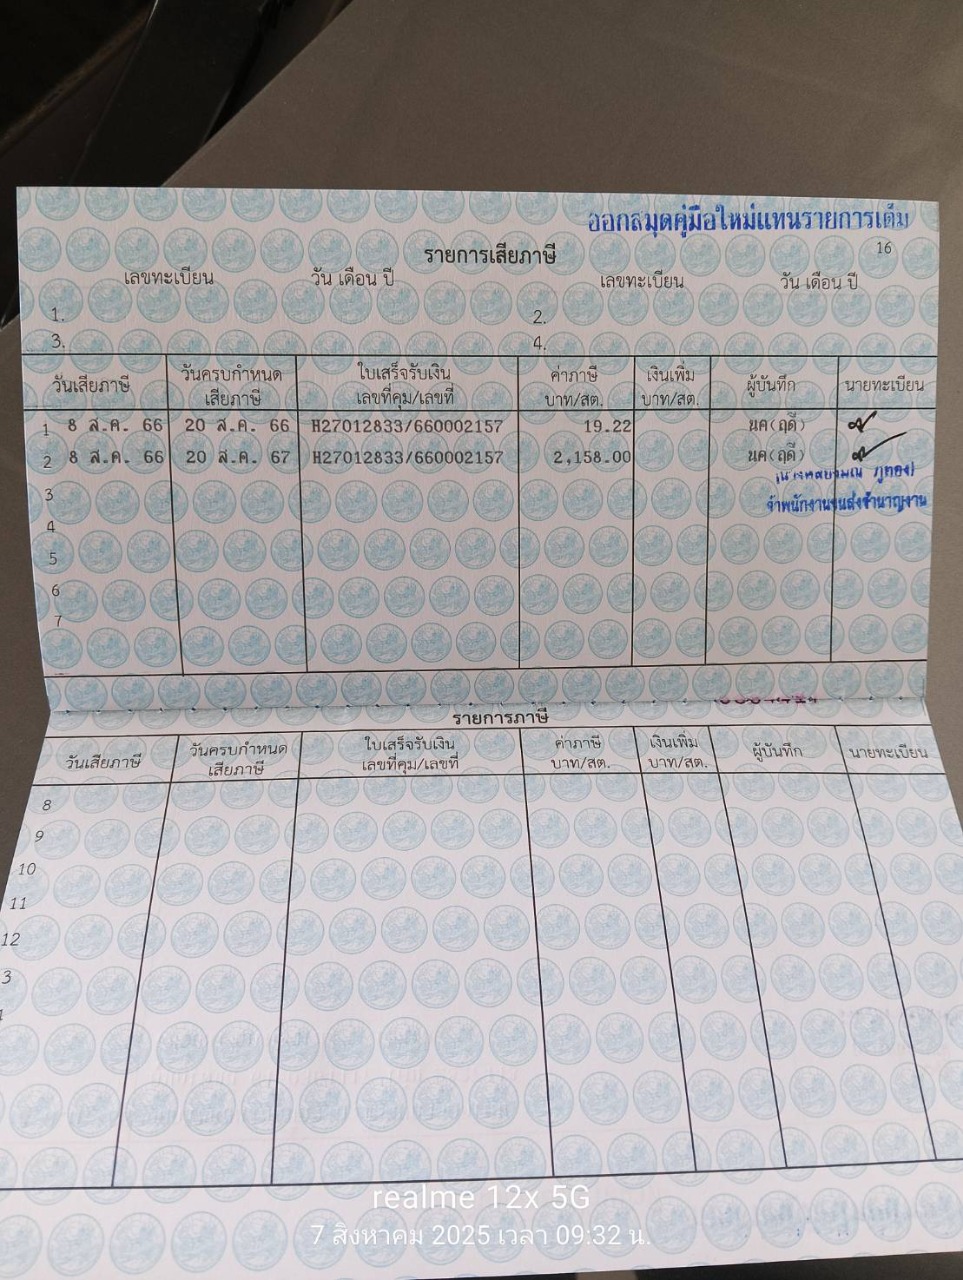 ออกสมุดคู่มือใหม่แทนรายการเดิม
16
รายการเสียภาษี
เลขทะเบียน วัน เดือน ปี เลขทะเบียน วัน เดือน ปี
1. 2.
3. 4.
วันเสียภาษี วันครบกำหนดเสียภาษี ใบเสร็จรับเงิน เลขที่คุม/เลขที่ ค่าภาษี บาท/สต. เงินเพิ่ม บาท/สต. ผู้บันทึก นายทะเบียน
1 8 ส.ค. 66 20 ส.ค. 66 H27012833/660002157 19.22 นค(ฤดี)
2 8 ส.ค. 66 20 ส.ค. 67 H27012833/660002157 2,158.00 นค(ฤดี)
3
เจ้าพนักงานขนส่งชำนาญงาน
4
5
6
7
รายการภาษี
วันเสียภาษี วันครบกำหนดเสียภาษี ใบเสร็จรับเงิน เลขที่คุม/เลขที่ ค่าภาษี บาท/สต. เงินเพิ่ม บาท/สต. ผู้บันทึก นายทะเบียน
8
9
10
11
12
3
realme 12x 5G
7 สิงหาคม 2025 เวลา 09:32 น.